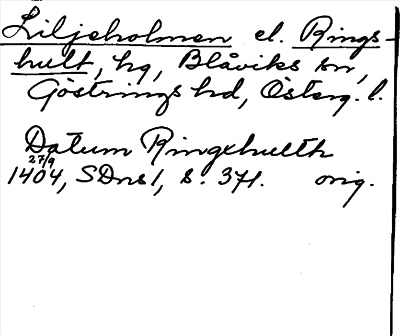 Liljeholmen el. Rings-
hult, hg, Blåviks sn,
Göstrings hd, Österg. l.
Datum Ringxhulth
27/9
1404, SDns 1, s. 371. orig.